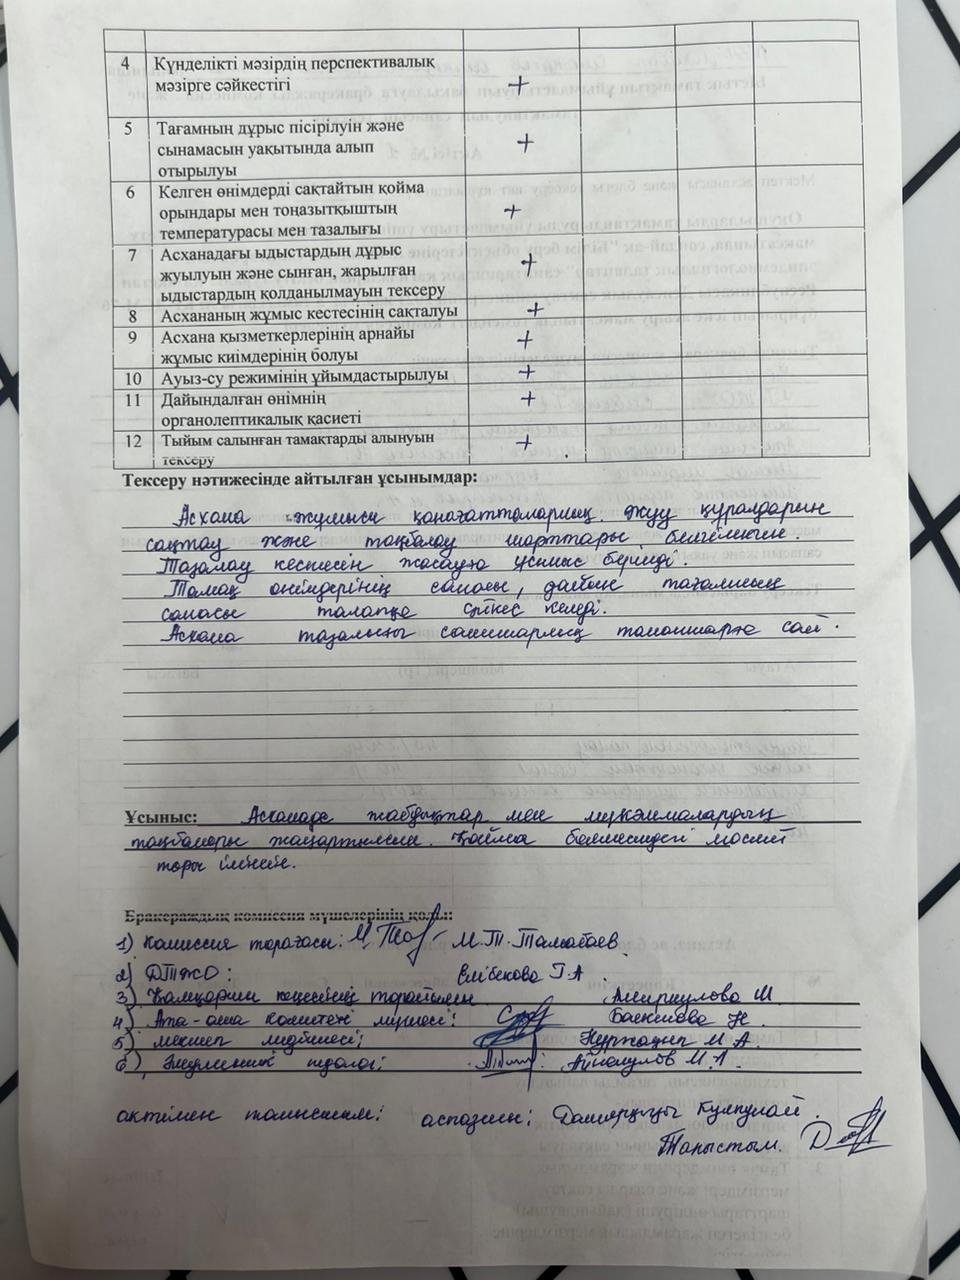 4 Күнделікті мәзірдің перспективалық +
мәзірге сәйкестігі
5 Тағамның дұрыс пісірілуін және +
сынамасын уақытында алып
отырылуы
6 Келген өнімдерді сақтайтын қойма +
орындары мен тоңазытқыштың
температурасы мен тазалығы
7 Асханадағы ыдыстардың дұрыс +
жуылуын және сынған, жарылған
ыдыстардың қолданылмауын тексеру
8 Асхананың жұмыс кестесінің сақталуы +
9 Асхана қызметкерлерінің арнайы +
жұмыс киімдерінің болуы
10 Ауыз-су режимінің ұйымдастырылуы +
11 Дайындалған өнімнің +
органолептикалық қасиеті
12 Тыйым салынған тамақтарды алынуын +
тексеру
Тексеру нәтижесінде айтылған ұсынымдар:
Асхана жұмысы қанағаттанарлық. Жуу құралдарын
сақтау және таңбалау шарттары белгіленген.
Тазалау кестесін жасауға ұсыныс берілді.
Тамақ өнімдерінің сапасы, дайын тағамның
сапасы талапқа сәйкес келеді.
Асхана тазалығы санитарлық талаптарға сай.
Ұсыныс: Асханада жабдықтар мен мүкәммалардың
таңбалары жаңартылсын. Қойма бөлмесіндегі москит
торы ілінсін.
Бракераждық комиссия мүшелерінің қолы:
1) Комиссия төрағасы: М.Т.
2) ДТЖО: Елібекова Г.А.
3) Қамқоршы кеңесінің төрайымы Ш.
4) Ата-ана комитет мүшесі: Н.
5) мектеп медбикесі: М.А.
6) педагог: М.Л.
актімен таныстым: аспазшы: Күлпунай.
Таныстым.